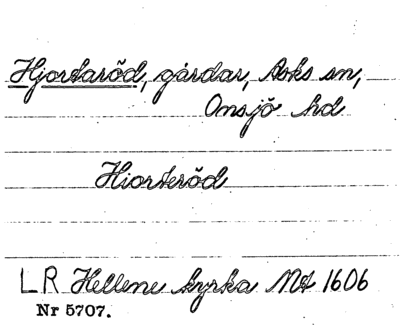 Hjortaröd, gårdar, Asks sn,
Onsjö hd
Hiorteröd
LR Hellene kyrka Nr 1606
Nr 5707.